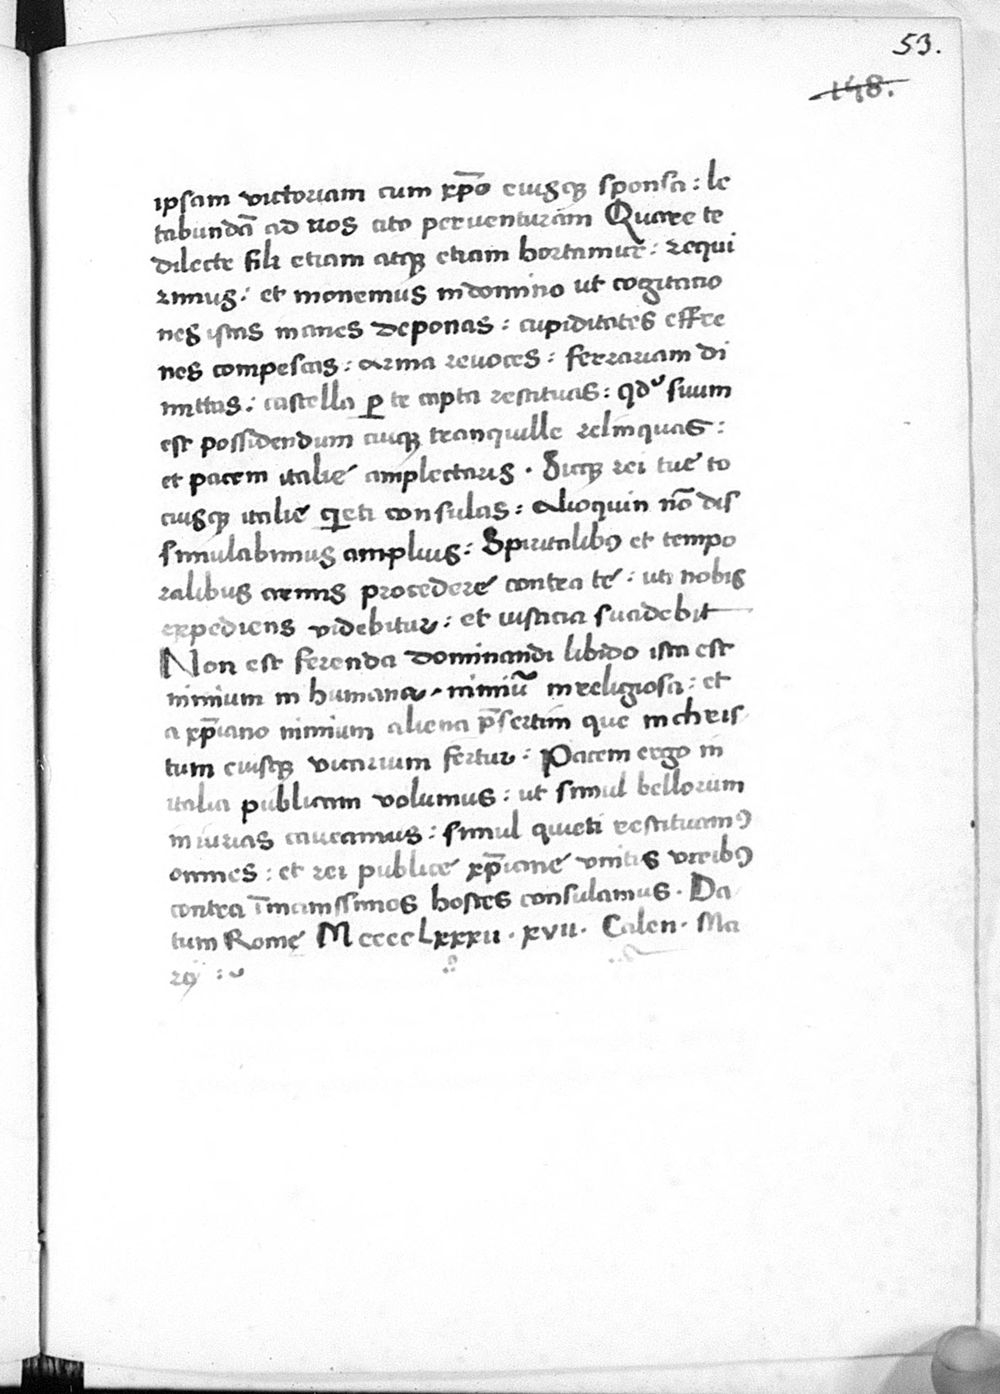 53.
148.
ipsam victoriam cum xp̄o eiusq̃ sponsa : le
tabundā ad nos cito perventuram Quare te
dilecte fili etiam atq̃ etiam hortamur : requi
rimus : et monemus in domino ut cogitatio
nes istas inanes deponas : cupiditates effre
nes compescas : arma revoces : ferrariam di
mittas : castella ꝑ te capta restituas : qd' suum
est possidendum cuiq̃ tranquille relinquas :
et pacem italię amplectaris . Sicq̃ rei tuę to
ciusq̃ italię q̄eti consulas : alioquin nō dis
simulabimus amplius : Spiritalibꝰ et tempo
ralibus armis procedere contra te : uti nobis
expediens videbitur : et iusticia suadebit
Non est ferenda dominandi libido ista est
nimium inhumana . nimiū inreligiosa : et
a xp̄iano nimium aliena p̄sertim que inchris
tum eiusq̃ vicarium fertur : Pacem ergo in
italia publicam volumus : ut simul bellorum
iniurias caveamus : simul quieti restituamꝰ
omnes : et rei publicę xp̄ianę unitis viribꝰ
contra īmanissimos hostes consulamus . Da
tum Romę Mcccclxxxii . xvii . Calen . Ma
rcij :